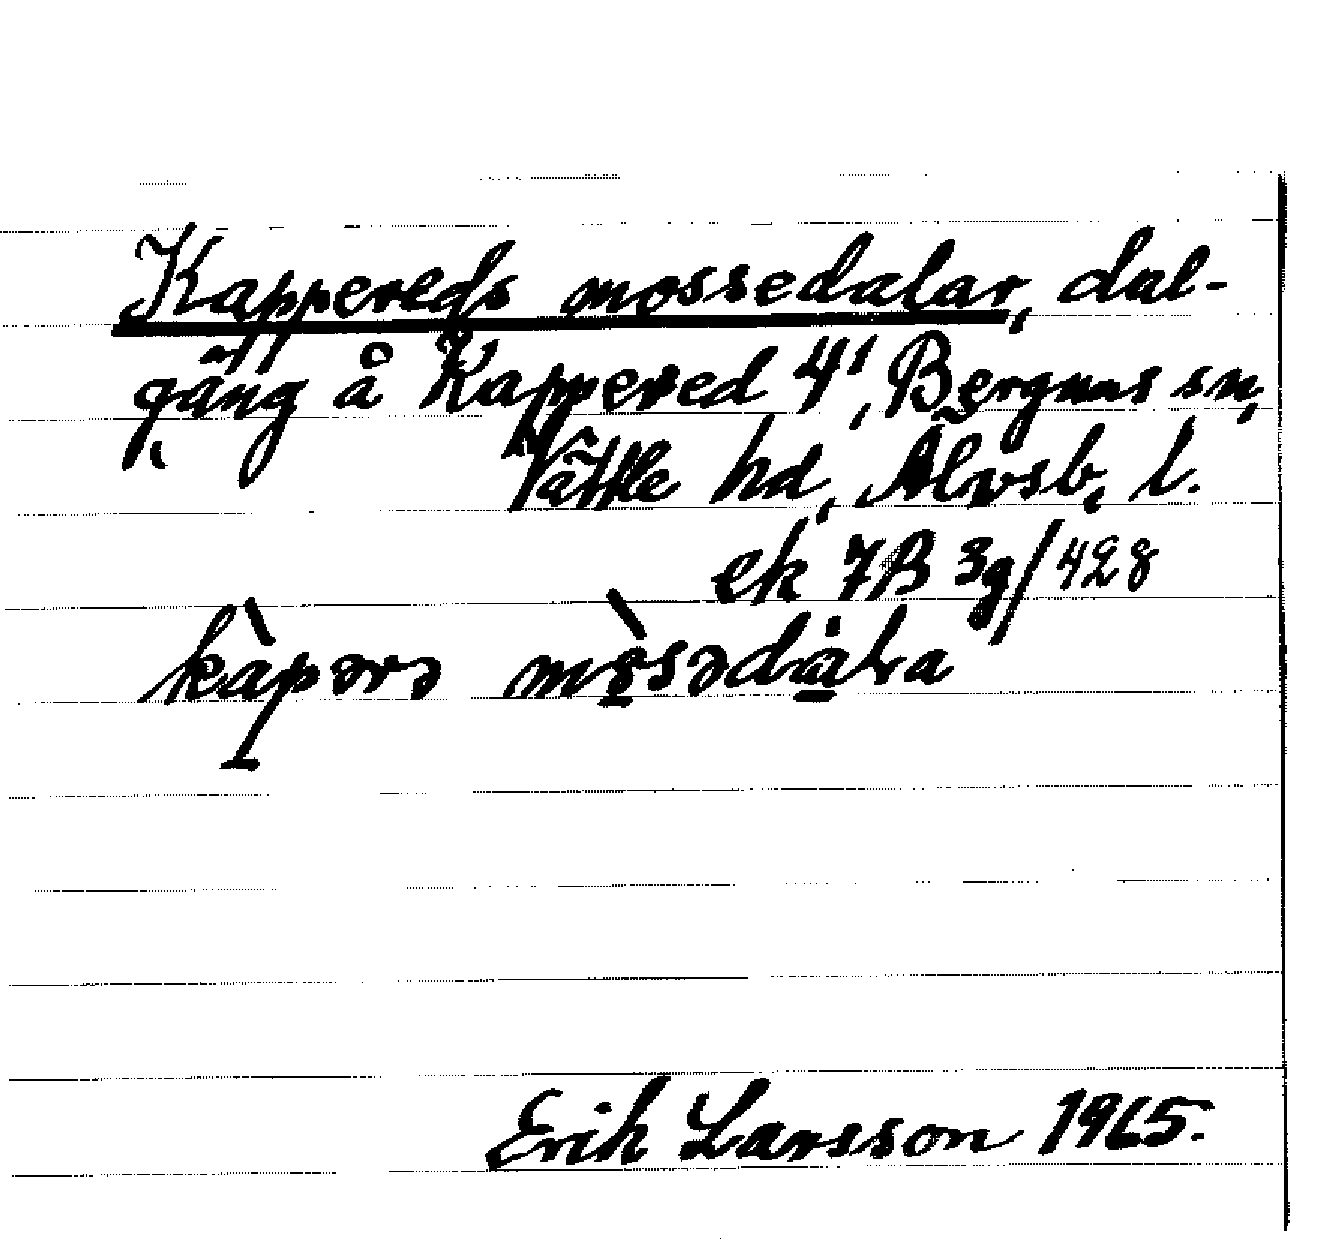 Kappereds mossedalar, dal-
gång å Kappered 4¹, Bergums sn,
Vättle hd, Älvsb. l.
ek 7B 3g/428
kàpərə mòsədàɫa
Erik Larsson 1965.